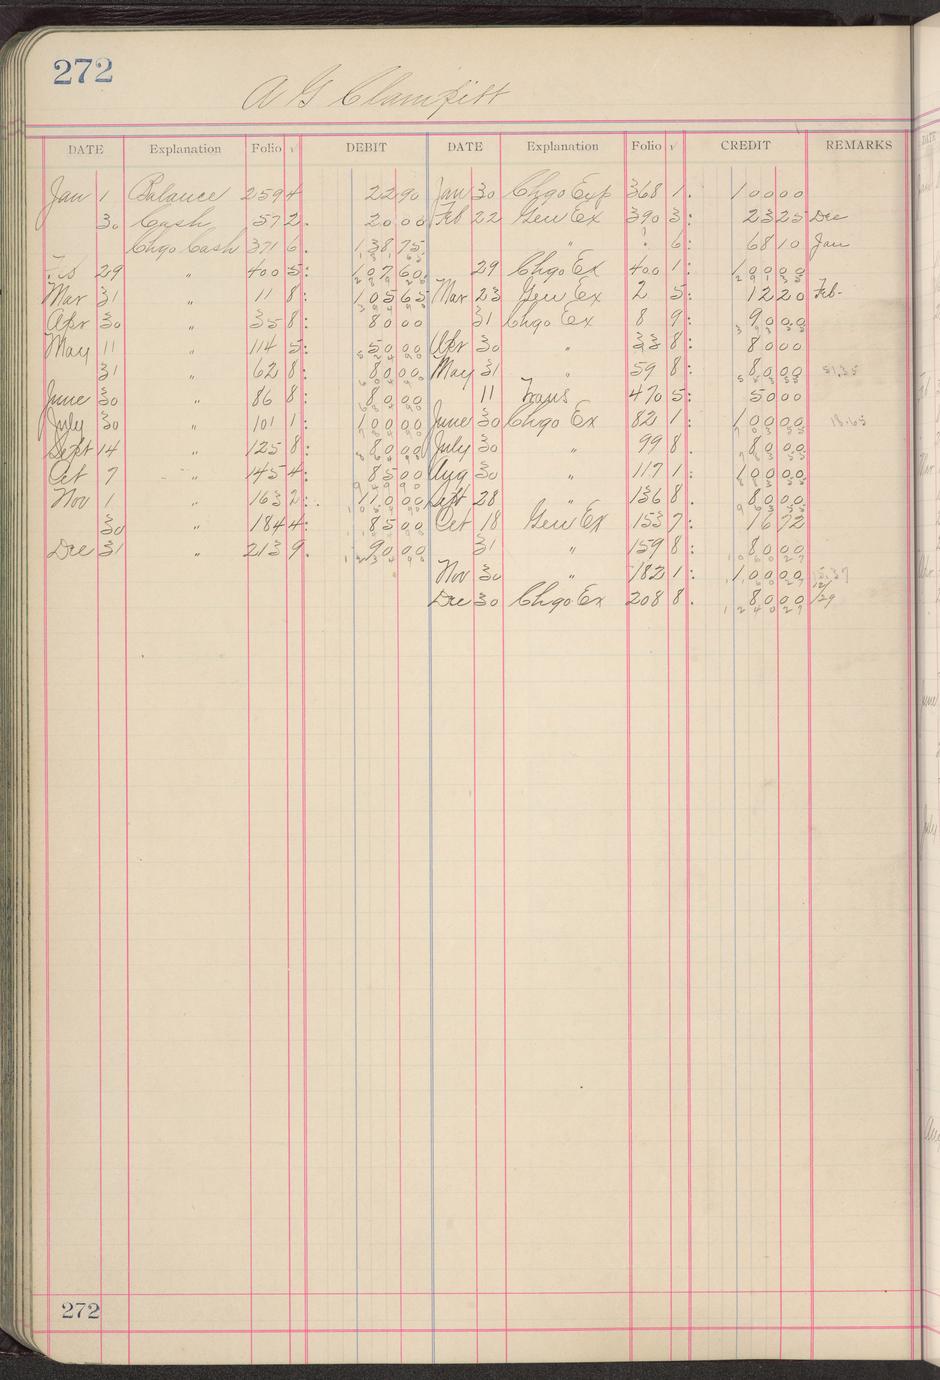 272
A G Clampitt
DATE Explanation Folio √ DEBIT DATE Explanation Folio √ CREDIT REMARKS
Jan 1 Balance 259 4 22 90 Jan 30 Chgo Exp 368 1. 100 00
30 Cash 57 2. 20 00 Feb 22 Gen Ex 390 3: 23 25 Dec
Chgo Cash 371 6. 138 75 " 6: 68 10 Jan
Feb 29 " 400 5: 107 60 29 Chgo Ex 400 1: 100 00
Mar 31 " 11 8: 105 65 Mar 23 Gen Ex 2 5: 12 20 Feb-
Apr 30 " 35 8: 80 00 31 Chgo Ex 8 9: 90 00
May 11 " 114 5: 50 00 Apr 30 " 33 8: 80 00
31 " 62 8: 80 00 May 31 " 59 8: 80 00 51.35
June 30 " 86 8: 80 00 11 Trans 470 5: 50 00
July 30 " 101 1: 100 00 June 30 Chgo Ex 82 1: 100 00 18.65
Sept 14 " 125 8: 80 00 July 30 " 99 8. 80 00
Oct 7 " 145 4: 85 00 Aug 30 " 117 1: 100 00
Nov 1 " 163 2: 110 00 Sept 28 " 136 8. 80 00
30 " 184 4: 85 00 Oct 18 Gen Ex 153 7: 16 72
Dec 31 " 213 9. 90 00 31 " 159 8: 80 00
Nov 30 " 182 1: 100 00 15.37
Dec 30 Chgo Ex 208 8. 80 00 12/29
272